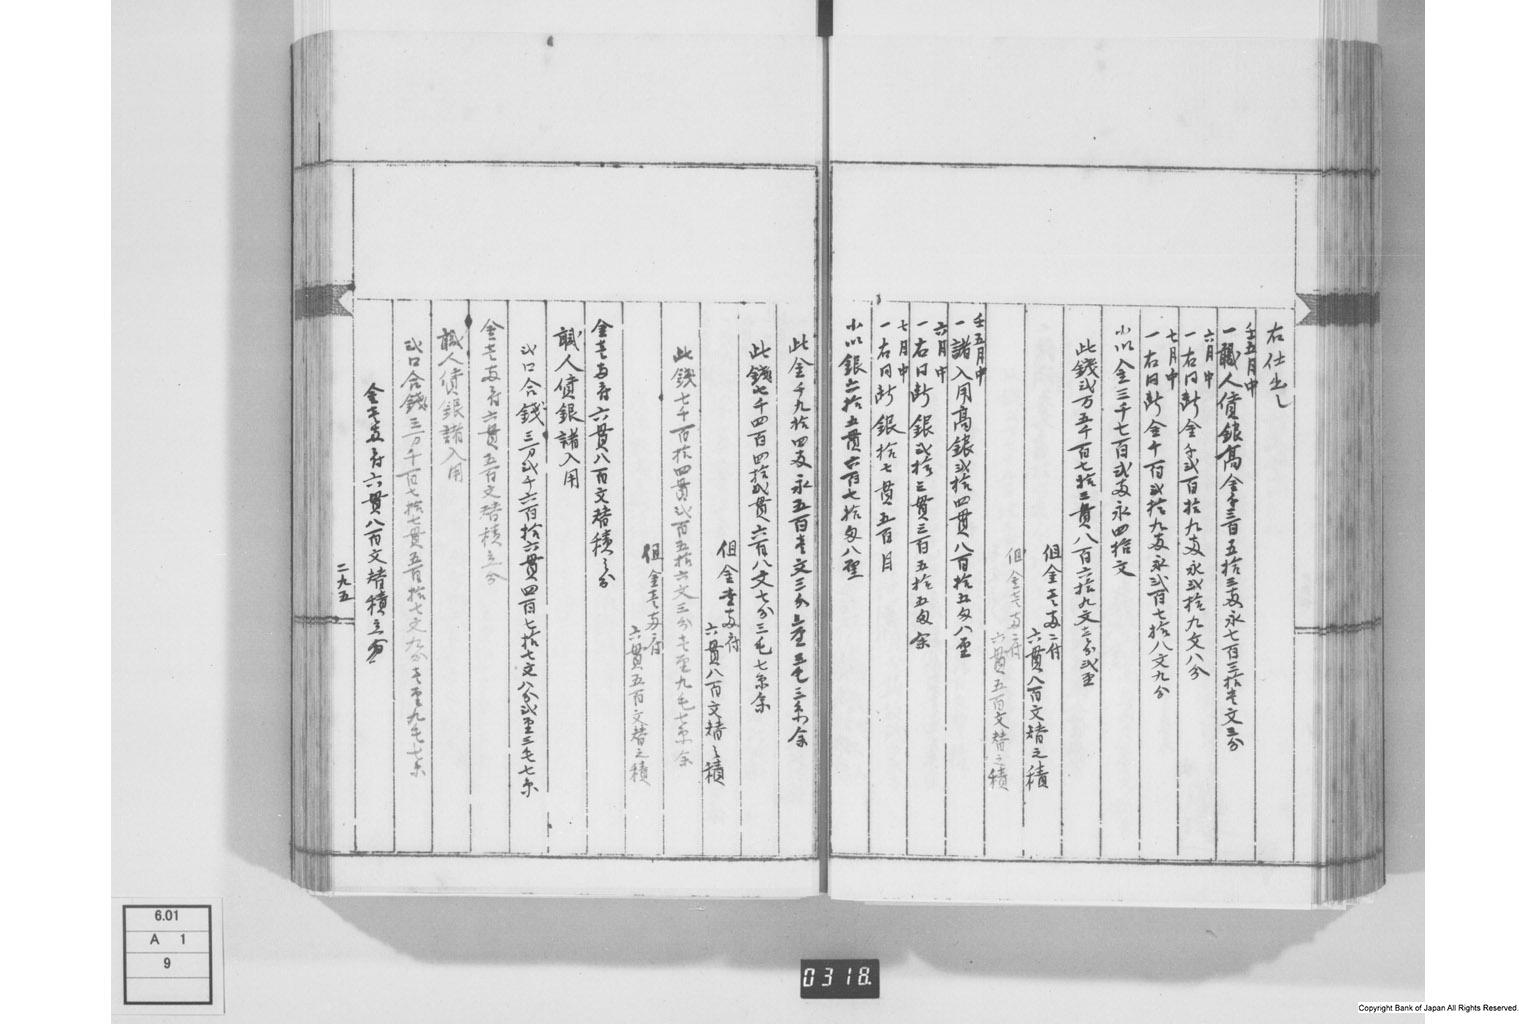 右仕出し
壬五月中
一職人賃銀高金千三百五拾三両永七百三拾壱文三分
六月中
一右同断金千弐百拾九両永弐拾九文八分
七月中
一右同断金千百弐拾九両永弐百七拾八文九分
小以金三千七百弐両永四拾文
此銭弐万五千百七拾三貫八百六拾九文三分弐厘
但金壱両ニ付
六貫八百文替之積
但金壱両ニ付
六貫五百文替之積
壬五月中
一諸入用高銀弐拾四貫八百拾五匁八厘
六月中
一右同断銀弐拾三貫三百五拾五匁余
七月中
一右同断銀拾七貫五百目
小以銀六拾五貫六百七拾匁八厘
此金千九拾四両永五百壱文三分三厘三毛三糸余
此銭七千四百四拾弐貫六百八文七分三毛七糸余
但金壱両ニ付
六貫八百文替之積
此銭七千百拾四貫弐百五拾六文三分壱厘九毛七糸余
但金壱両ニ付
六貫五百文替之積
金壱両ニ付六貫八百文替積之分
職人賃銀諸入用
弐口合銭三万弐千六百拾六貫四百七拾七文八分弐厘三毛七糸
金壱両ニ付六貫五百文替積之分
職人賃銀諸入用
弐口合銭三万千百七拾七貫五百拾七文九分壱厘九毛七糸
金壱両ニ付六貫八百文替積之分
二九五
6.01
A 1
9
0318.
Copyright Bank of Japan All Rights Reserved.